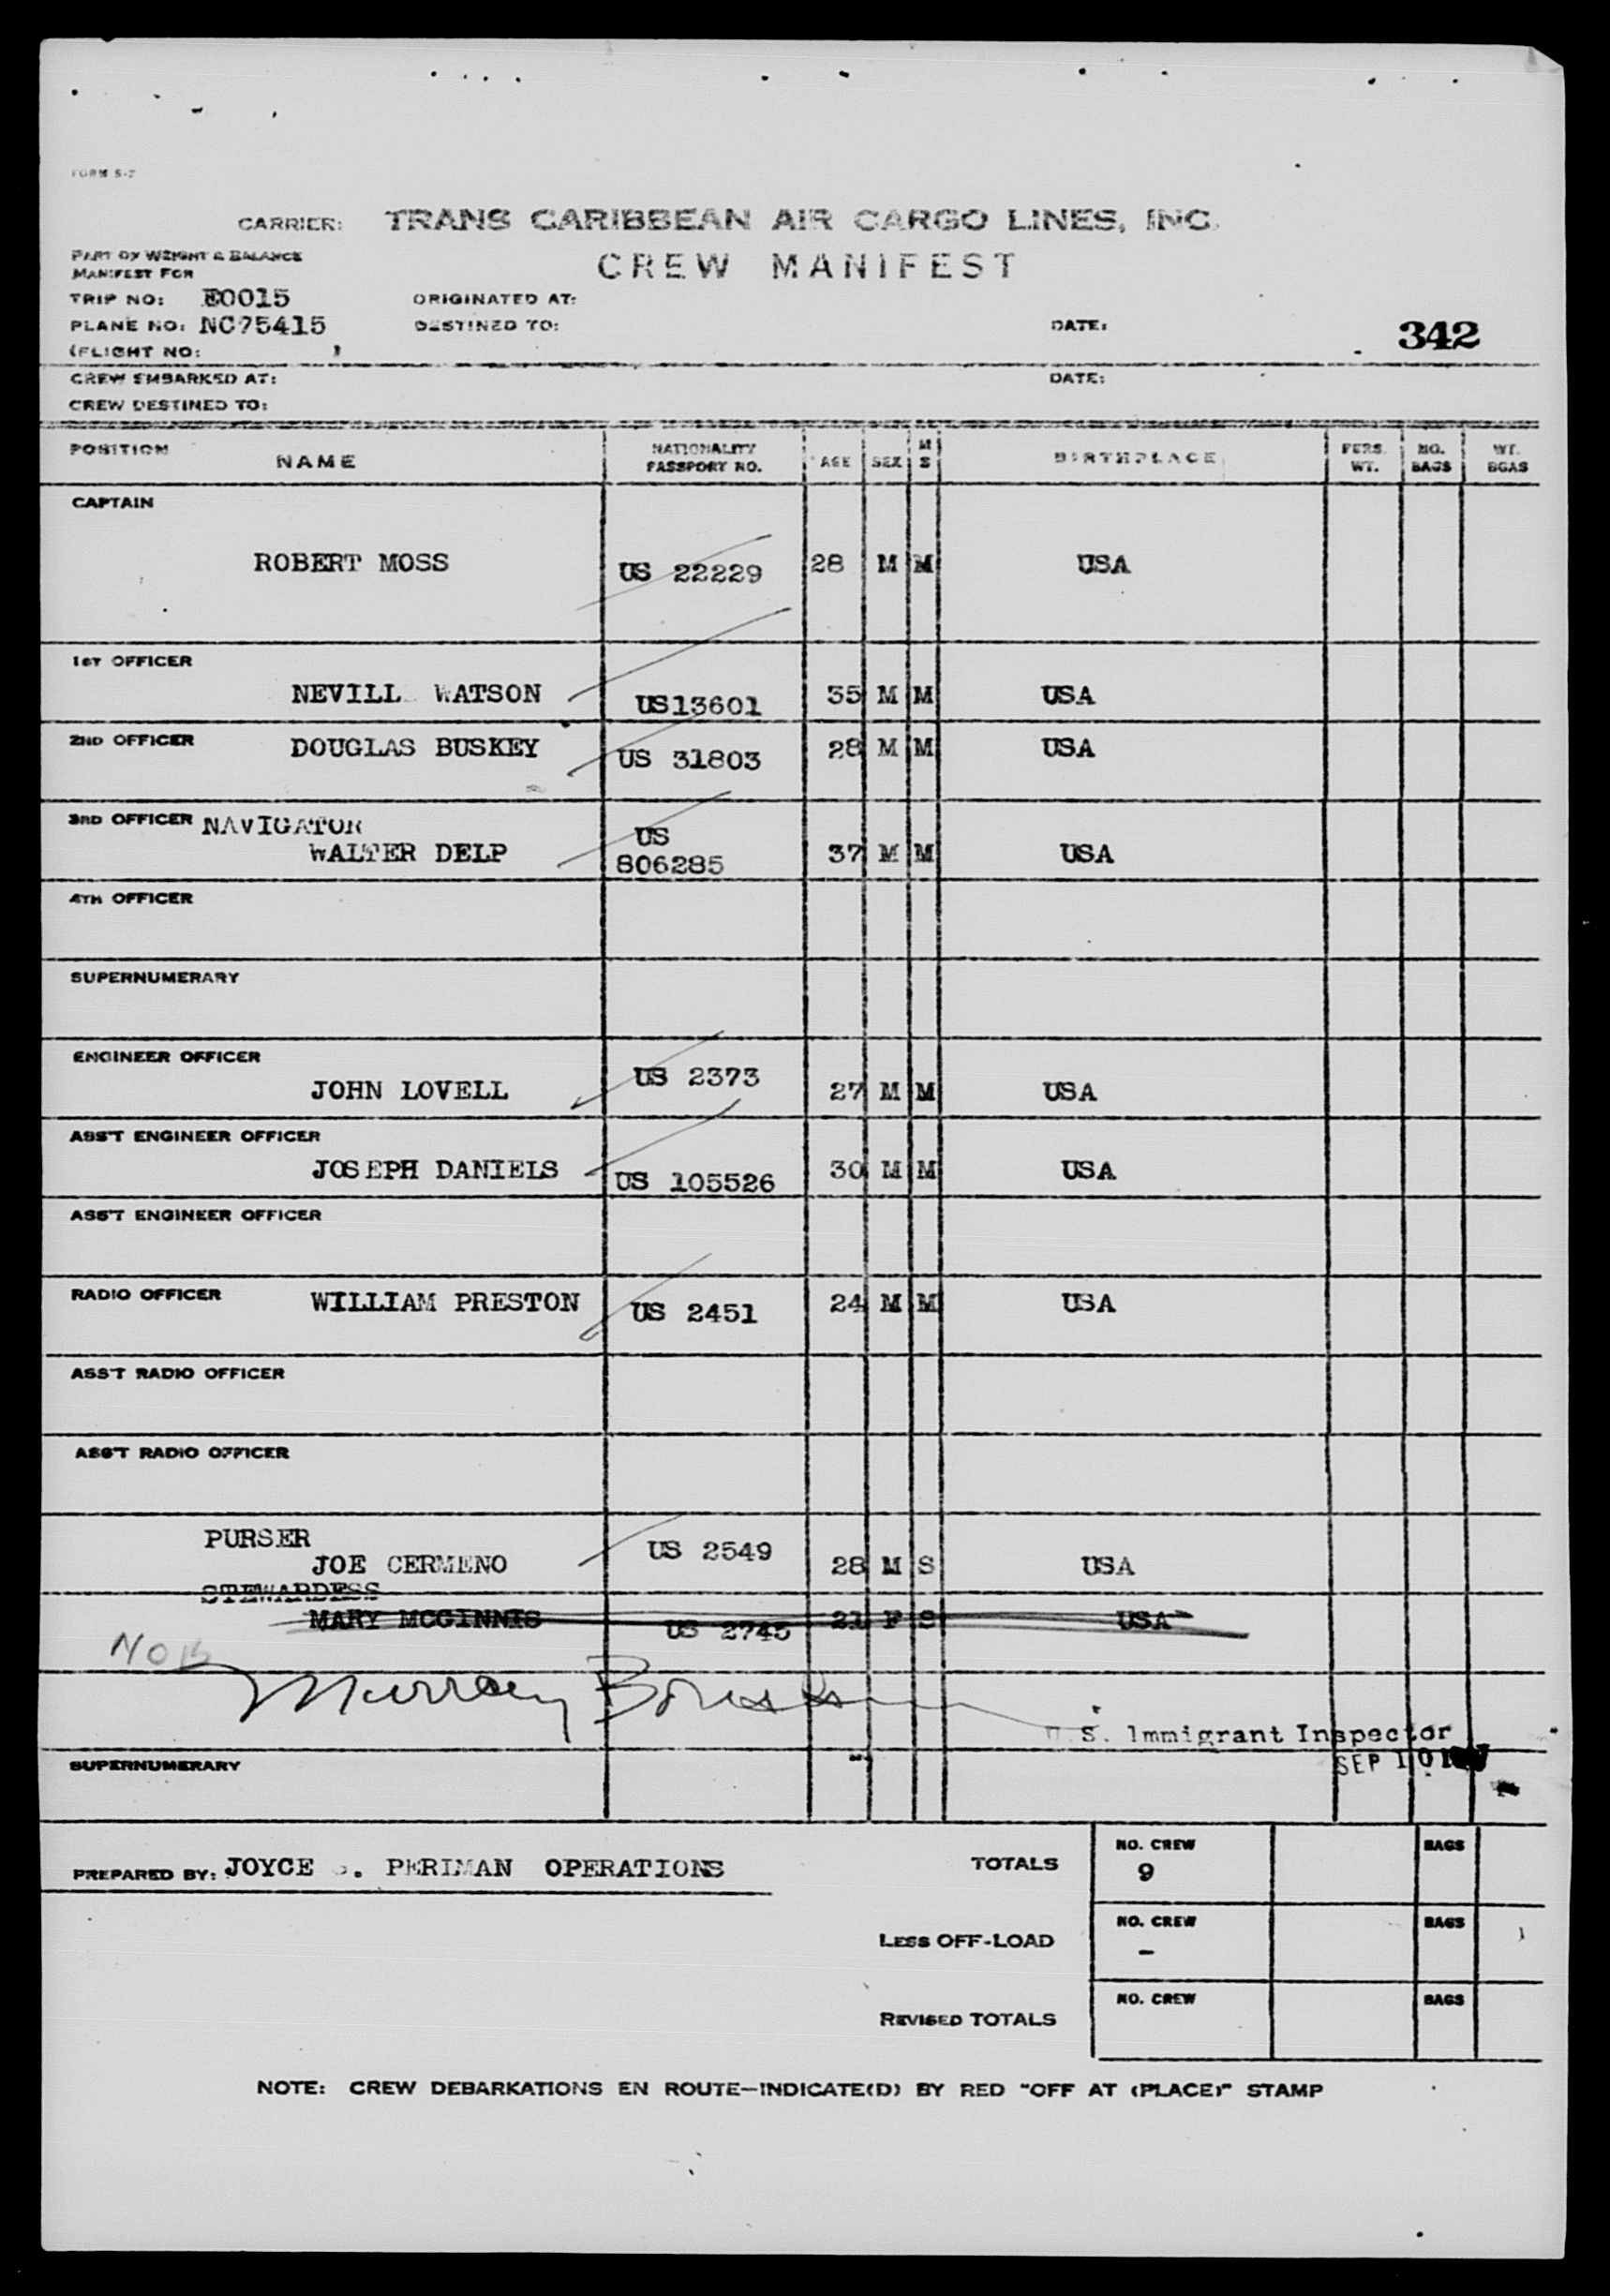 FORM S-7
CARRIER: TRANS CARIBBEAN AIR CARGO LINES, INC.
PART OF WEIGHT & BALANCE
MANIFEST FOR
CREW MANIFEST
TRIP NO: E0015 ORIGINATED AT:
PLANE NO: NC75415 DESTINED TO: DATE: 342
(FLIGHT NO: )
CREW EMBARKED AT: DATE:
CREW DESTINED TO:
POSITION NAME NATIONALITY PASSPORT NO. AGE SEX M S BIRTHPLACE PERS. WT. NO. BAGS WT. BGAS
CAPTAIN
ROBERT MOSS US 22229 28 M M USA
1ST OFFICER
NEVILL WATSON US13601 35 M M USA
2ND OFFICER DOUGLAS BUSKEY US 31803 28 M M USA
3RD OFFICER NAVIGATOR
WALTER DELP US 806285 37 M M USA
4TH OFFICER
SUPERNUMERARY
ENGINEER OFFICER
JOHN LOVELL US 2373 27 M M USA
ASS'T ENGINEER OFFICER
JOSEPH DANIELS US 105526 30 M M USA
ASS'T ENGINEER OFFICER
RADIO OFFICER WILLIAM PRESTON US 2451 24 M M USA
ASS'T RADIO OFFICER
ASS'T RADIO OFFICER
PURSER
JOE CERMENO US 2549 28 M S USA
STEWARDESS
MARY MCGINNIS US 2745 21 F S USA
NOB
Murray
U.S. Immigrant Inspector
SEP 10
SUPERNUMERARY
PREPARED BY: JOYCE . PERIMAN OPERATIONS
TOTALS NO. CREW 9 BAGS
LESS OFF-LOAD NO. CREW - BAGS
REVISED TOTALS NO. CREW BAGS
NOTE: CREW DEBARKATIONS EN ROUTE—INDICATE(D) BY RED "OFF AT (PLACE)" STAMP